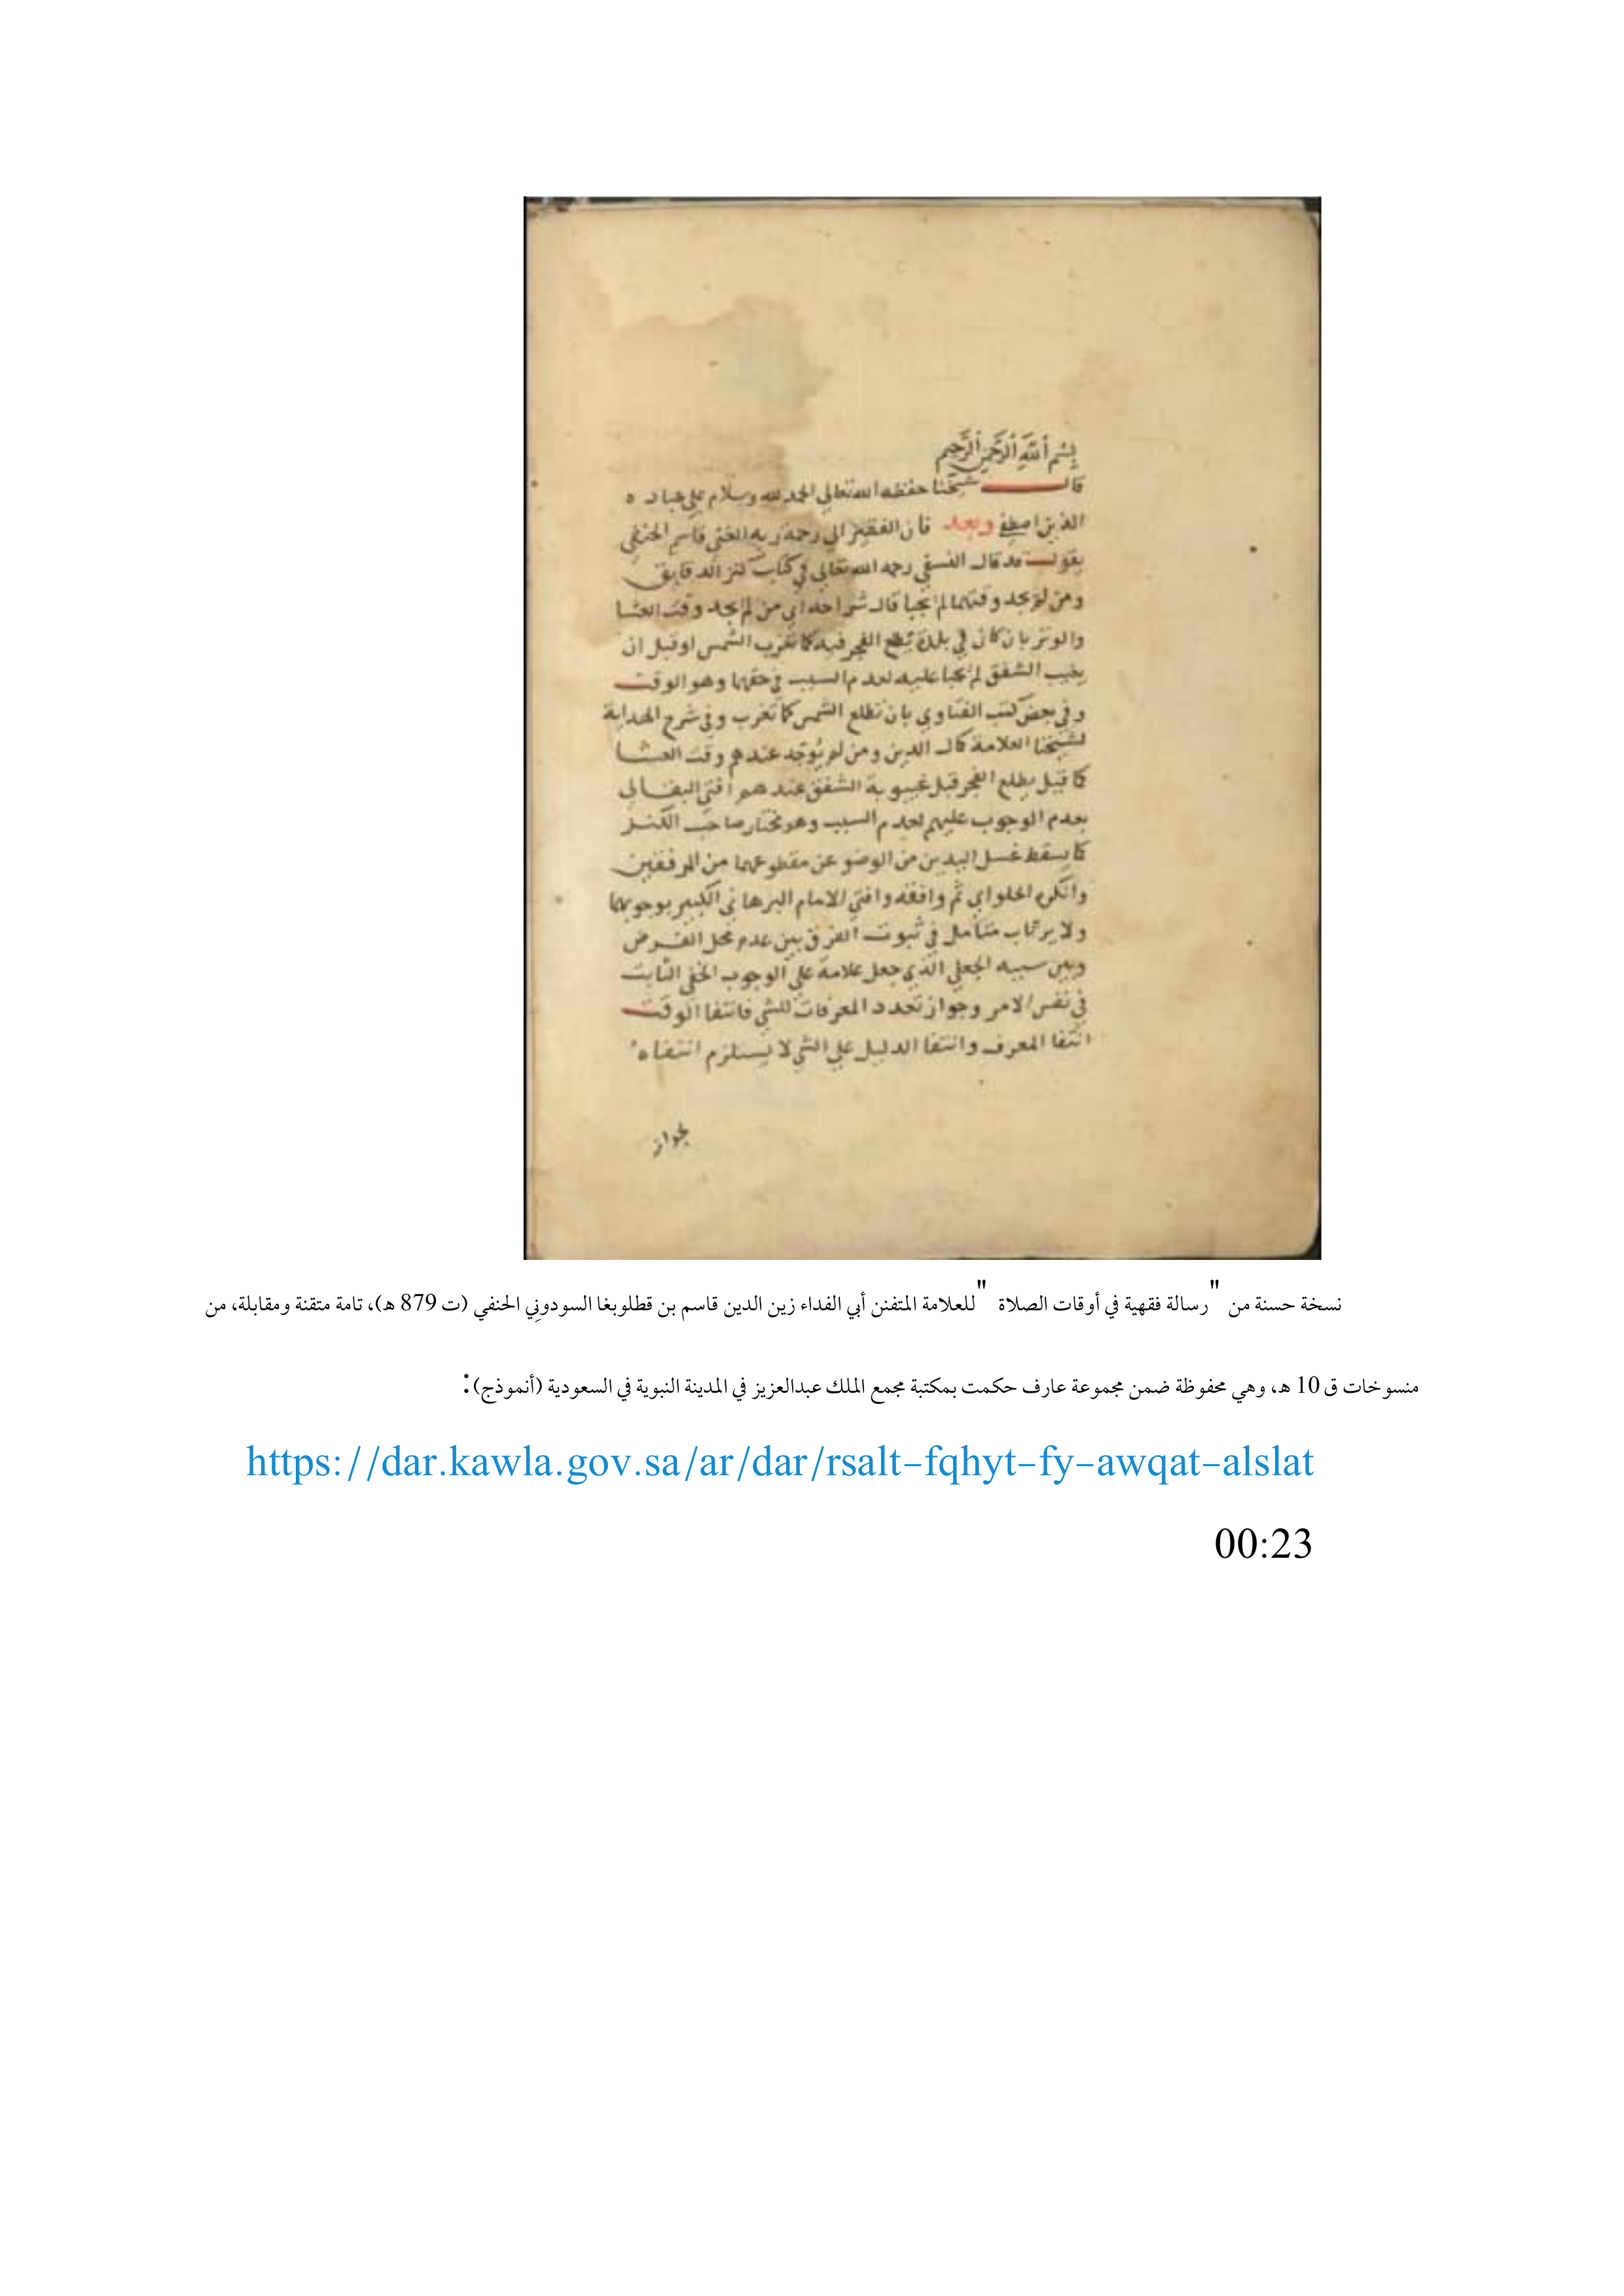 بِسْمِ اللَّهِ الرَّحْمَنِ الرَّحِيم
قال شيخنا حفظه الله تعالي الحمد لله وسلام علي عباده
الذين اصطفي وبعد فان الفقير الي رحمة ربه الغني قاسم الحنفي
يقول قد قال النسفي رحمه الله تعالي في كتاب كنز الدقايق
ومن لم يجد وقتهما لم يجبا قال شراحه اي من لم يجد وقت العشا
والوتر بان كان في بلدة يطلع الفجر فيه كما تغرب الشمس او قبل ان
يغيب الشفق لم يجبا عليه لعدم السبب في حقهما وهو الوقت
وفي بعض كتب الفتاوي بان تطلع الشمس كما تغرب وفي شرح الهداية
لشيخنا العلامة كمال الدين ومن لم يوجد عندهم وقت العشا
كما قيل يطلع الفجر قبل غيبوبة الشفق عندهم افتي البقالي
بعدم الوجوب عليهم لعدم السبب وهو مختار صاحب الكنز
كما يسقط غسل اليدين من الوضو عن مقطوعهما من المرفقين
وانكره الحلواي ثم وافقه وافتي الامام البرهاني الكبير بوجوبهما
ولا يرتاب متامل في ثبوت الفرق بين عدم محل الفرض
وبين سببه الجعلي الذي جعل علامة علي الوجوب الخفي الثابت
في نفس الامر وجواز تعدد المعرفات للشي فانتفا الوقت
انتفا المعرف وانتفا الدليل علي الشي لا يستلزم انتفاه
لجواز
نسخة حسنة من "رسالة فقهية في أوقات الصلاة "للعلامة المتفنن أبي الفداء زين الدين قاسم بن قطلوبغا السودوني الحنفي (ت 879 هـ)، تامة متقنة ومقابلة، من
منسوخات ق 10 هـ، وهي محفوظة ضمن مجموعة عارف حكمت بمكتبة مجمع الملك عبدالعزيز في المدينة النبوية في السعودية (أنموذج):
https://dar.kawla.gov.sa/ar/dar/rsalt-fqhyt-fy-awqat-alslat
00:23